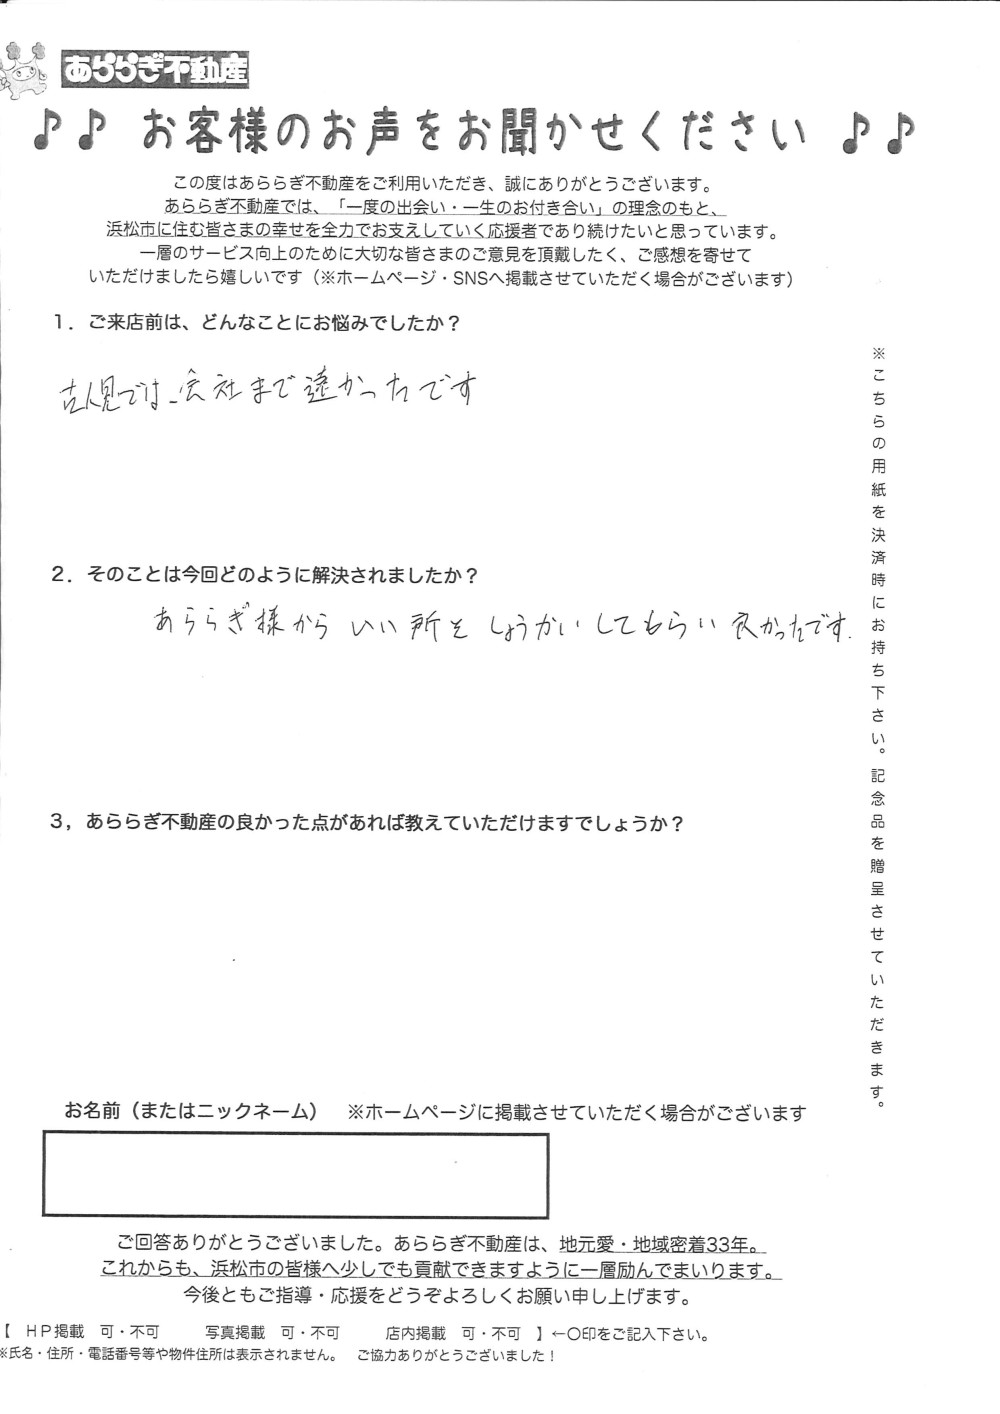 あららぎ不動産
♪♪ お客様のお声をお聞かせください ♪♪
この度はあららぎ不動産をご利用いただき、誠にありがとうございます。
あららぎ不動産では、「一度の出会い・一生のお付き合い」の理念のもと、
浜松市に住む皆さまの幸せを全力でお支えしていく応援者であり続けたいと思っています。
一層のサービス向上のために大切な皆さまのご意見を頂戴したく、ご感想を寄せて
いただけましたら嬉しいです（※ホームページ・SNSへ掲載させていただく場合がございます）
１．ご来店前は、どんなことにお悩みでしたか？
では、会社まで遠かったです
２．そのことは今回どのように解決されましたか？
あららぎ様から いい所を しょうかいしてもらい 良かったです.
３，あららぎ不動産の良かった点があれば教えていただけますでしょうか？
※こちらの用紙を決済時にお持ち下さい。記念品を贈呈させていただきます。
お名前（またはニックネーム） ※ホームページに掲載させていただく場合がございます
ご回答ありがとうございました。あららぎ不動産は、地元愛・地域密着33年。
これからも、浜松市の皆様へ少しでも貢献できますように一層励んでまいります。
今後ともご指導・応援をどうぞよろしくお願い申し上げます。
【 ＨＰ掲載 可・不可 写真掲載 可・不可 店内掲載 可・不可 】←○印をご記入下さい。
※氏名・住所・電話番号等や物件住所は表示されません。 ご協力ありがとうございました！